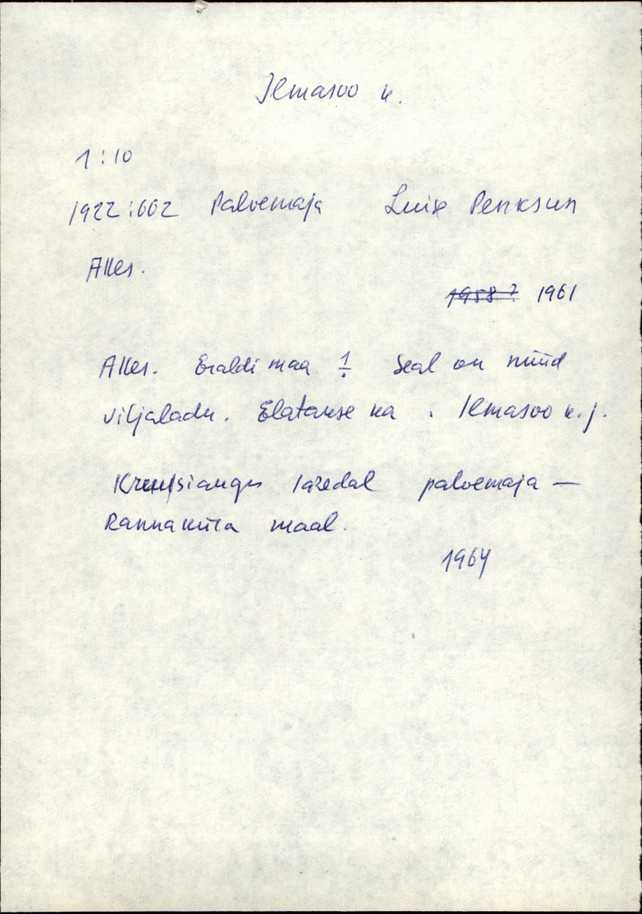 Ilmasoo k.
1:10
1922:662 Palvemaja Luise Penksun
Alles.
1958? 1961
Alles. Eraldi maa 1 Seal on nüüd
viljaladu. Elatakse ka. Ilmasoo k. j.
lähedal palvemaja —
Rannaküla maal.
1964